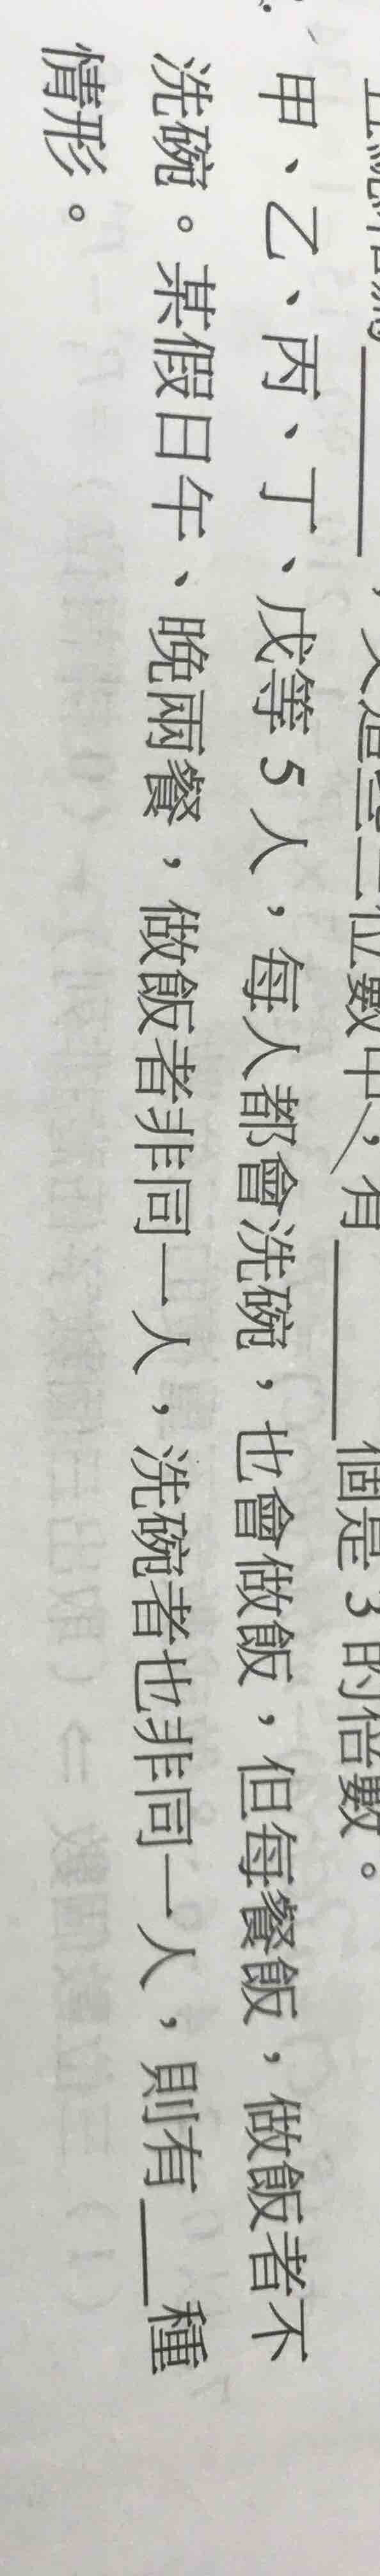 位數中，有 個是3的倍數。
甲、乙、丙、丁、戊等5人，每人都會洗碗，也會做飯，但每餐飯，做飯者不
洗碗。某假日午、晚兩餐，做飯者非同一人，洗碗者也非同一人，則有___種
情形。